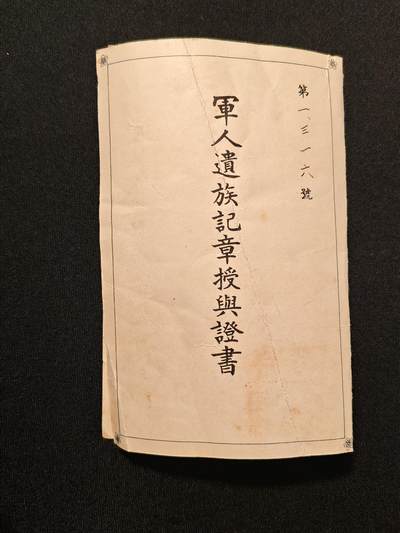 第一、三一六號
軍人遺族記章授與證書